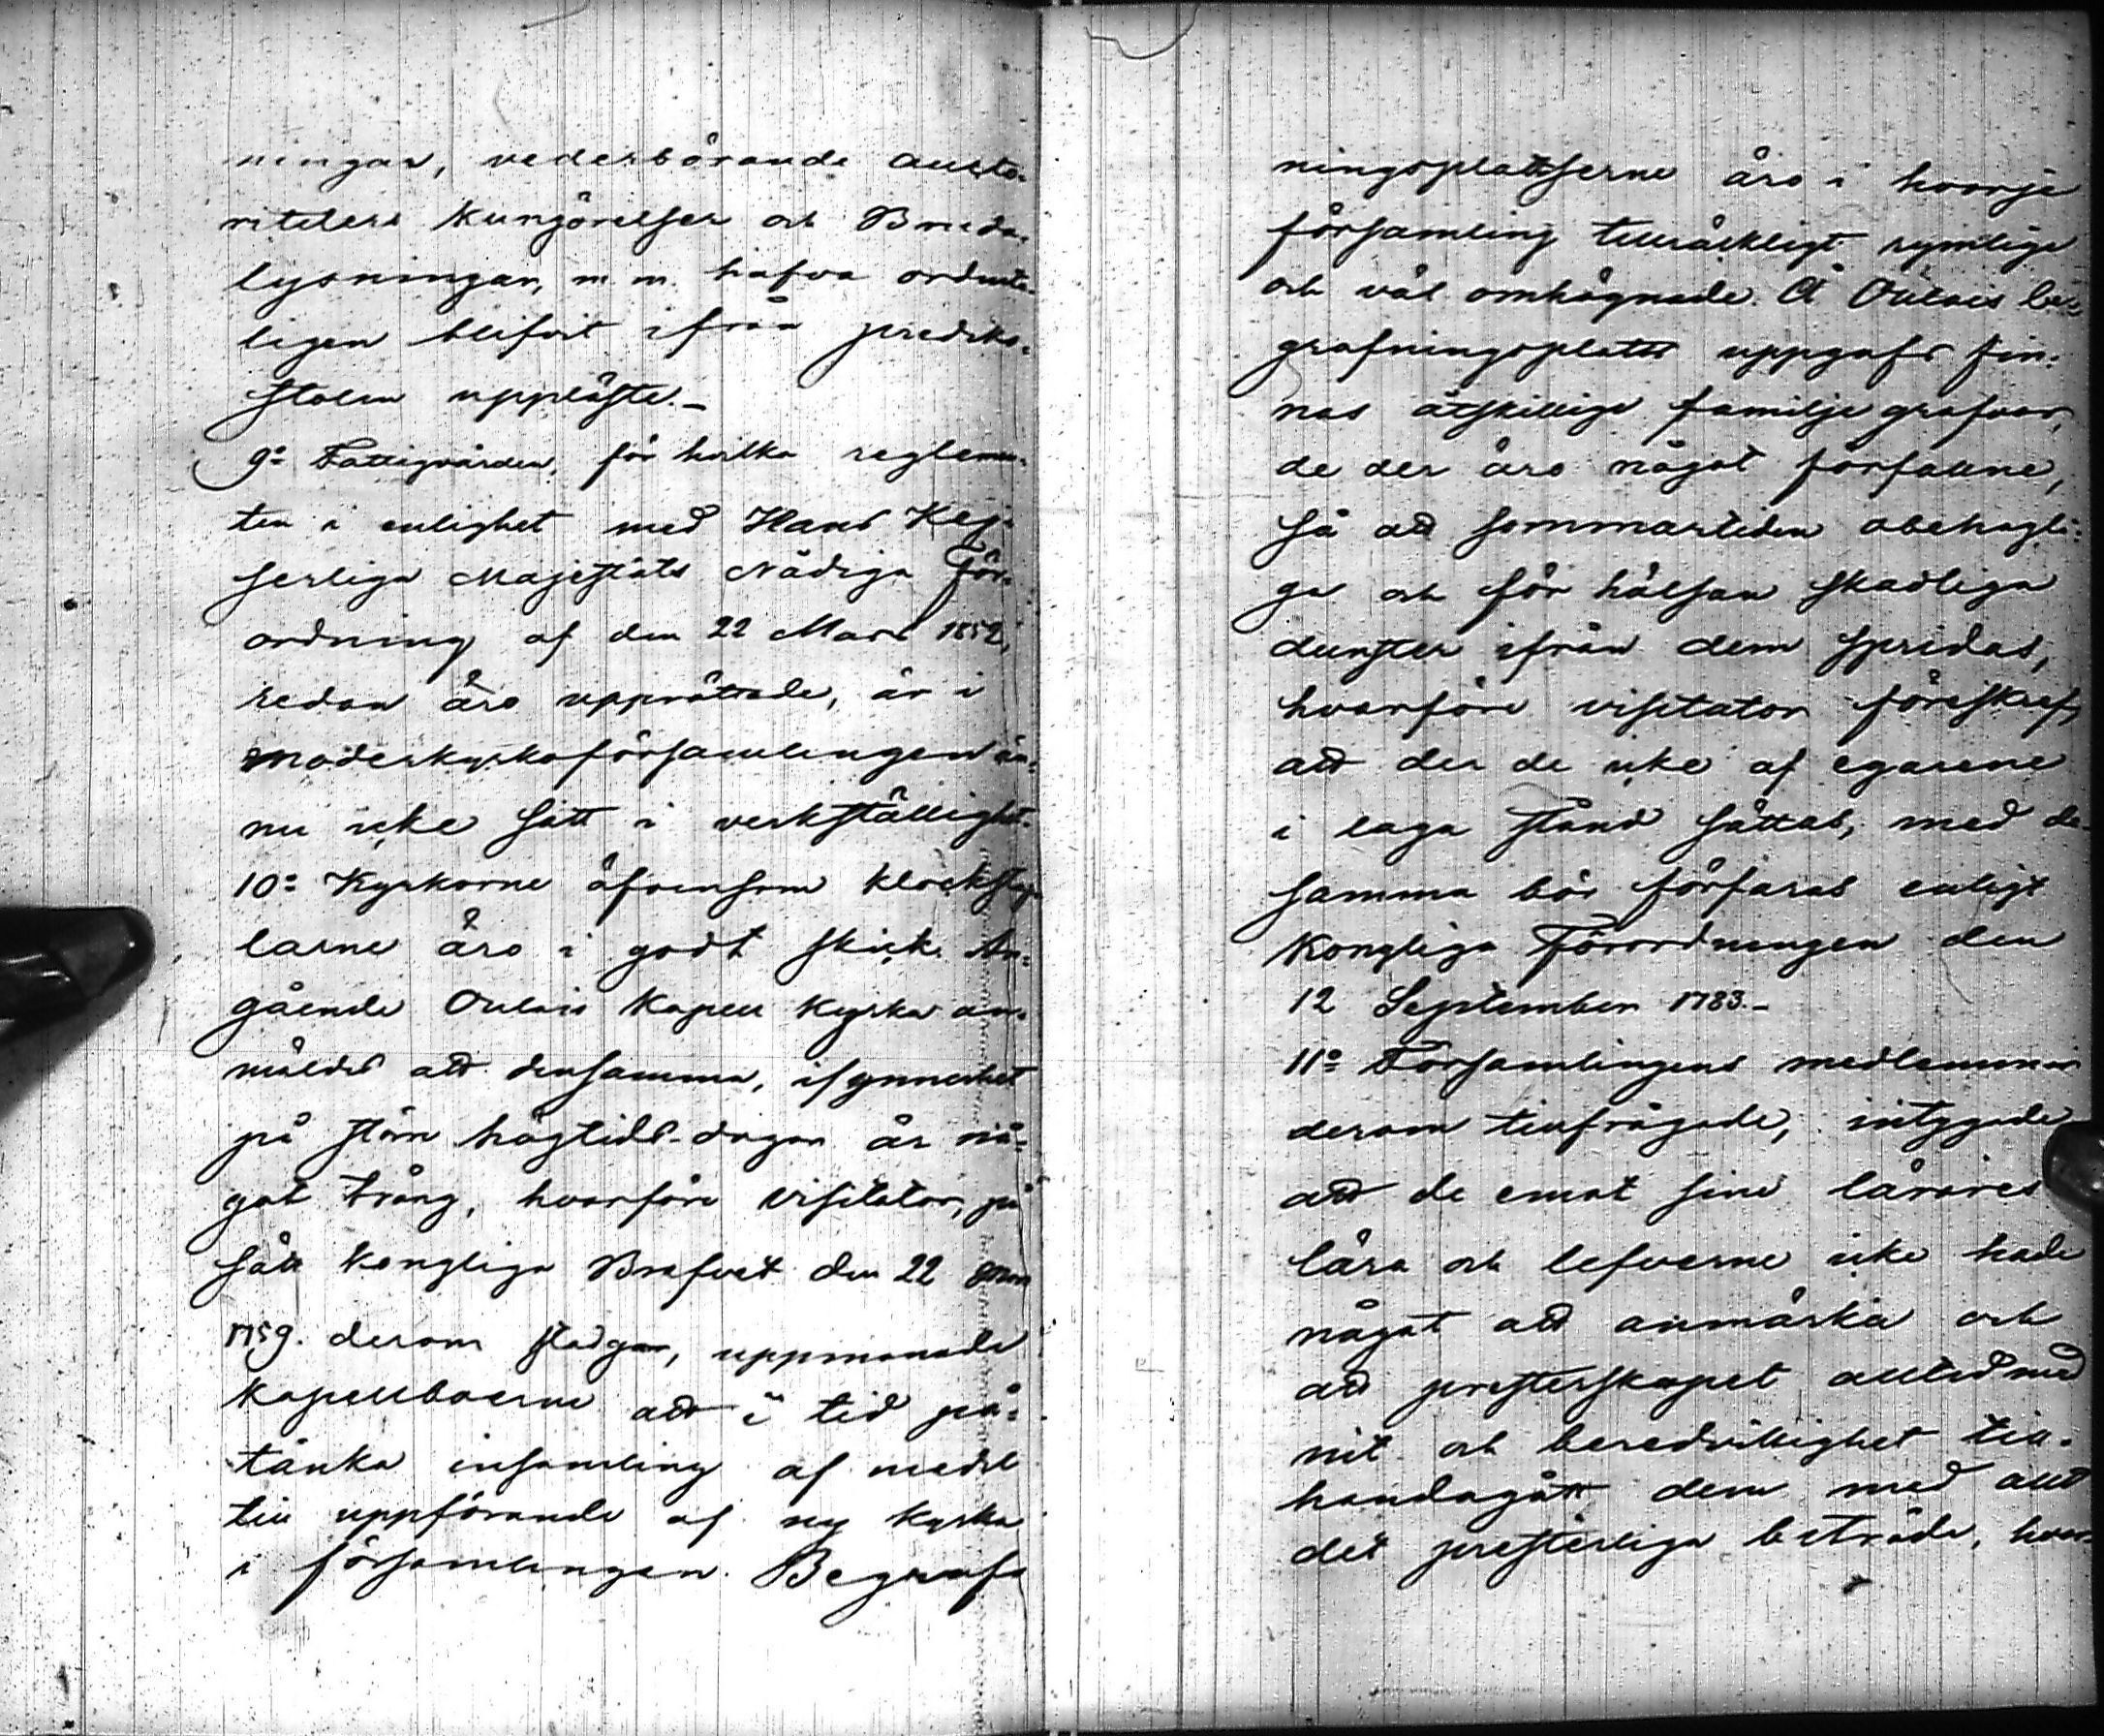 ningar, vederbörande aucto-
riteters Kungörelser och Bruda-
lysningar, m m hafva ordent-
ligen blifvit ifrån prediko-
stolen uppläste.-
9:o Fattigvården, för hvilka reglemen-
ten i enlighet med Hans Kej-
serliga Majestäts Nådiga För-
ordning af den 22 Mars 1852,
redan äro upprättade, är i
Moderkyrkoförsamlingen än-
nu icke satt i verkställighet.
10:o Kyrkorne äfvensom klockstap-
larne äro i godt skick. An-
gående Oulais Kapell Kyrka an-
mäldes att densamma, isynnerhet
på störe högtids-dagar är nå-
got trång, hvarföre visitator, på
sätt Kongliga Brefvet den 22
1759. derom stadgar, uppmanade
Kapellboerne att i tid på-
tänka insamling af medel
till uppförande af ny kyrka
i församlingen. Begraf-
ningsplatserne äro i hvarje
församling tillräckligt rymlige
och väl omhägnade. Å Oulais be-
grafningsplats uppgafs fin-
nas åtskillige familje grafvar,
de der äro något förfallne,
så att sommartiden obehagli-
ga och för hälsan skadliga
dunster ifrån dem spridas,
hvarföre visitator föreskref,
att der de icke af egarene
i laga stånd sättas, med de-
samma bör förfaras enligt
Kongliga Förordningen den
12 September 1783.-
11:o Församlingens medlemmar
derom tillfrågade, intygade
att de emot sine lärares
lära och lefverne icke hade
något att anmärka och
att presterskapet alltid med
nit och beredvillighet till-
handagått dem med allt
det presterliga beträde, hvar-